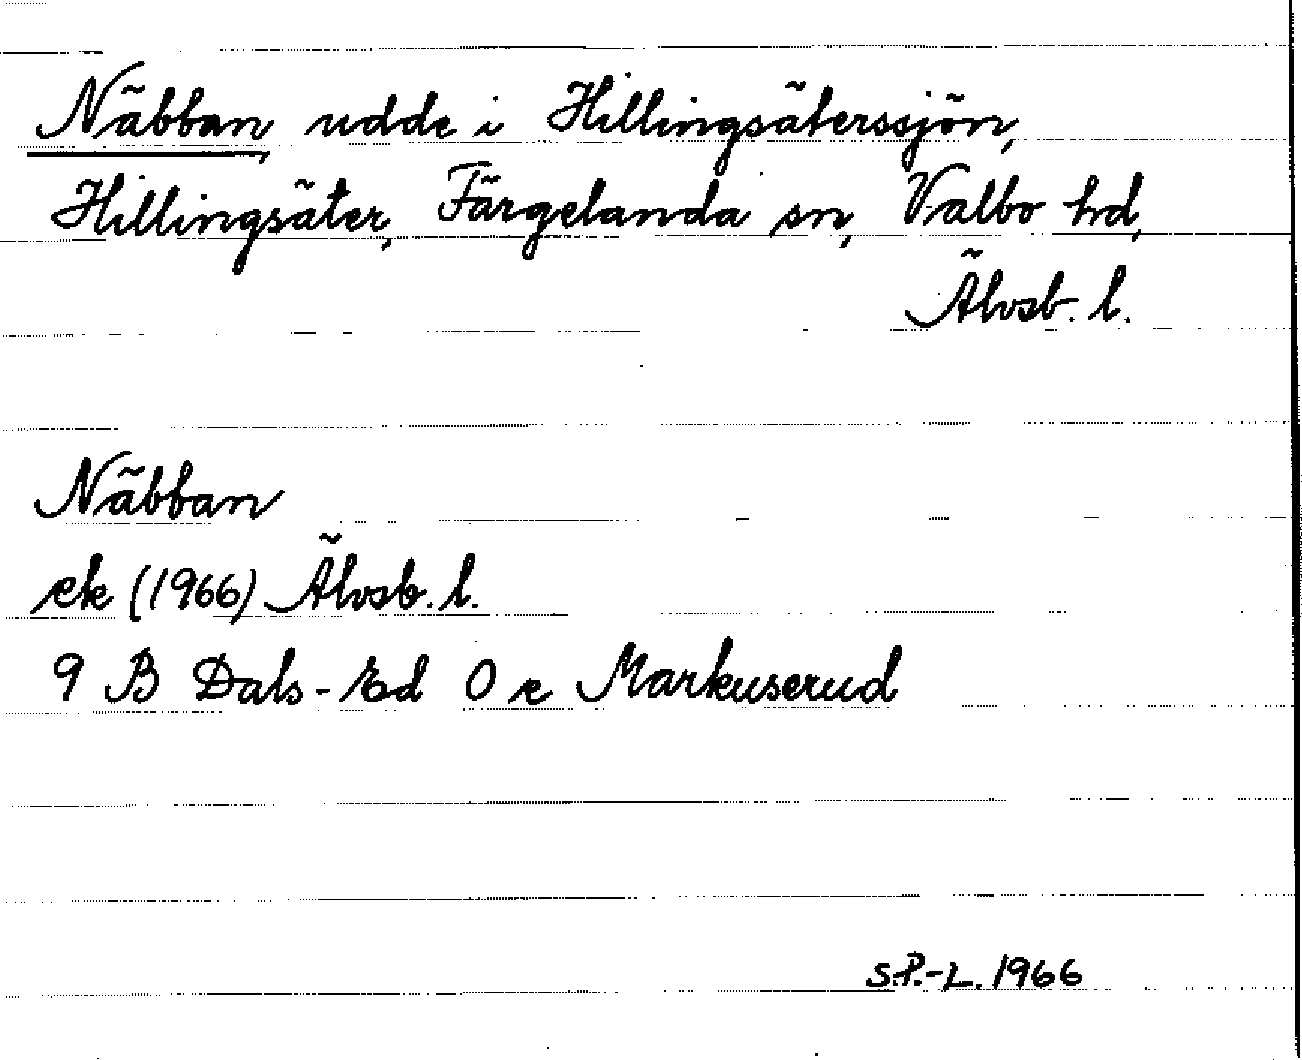 Näbban, udde i Hillingsäterssjön,
Hillingsäter, Färgelanda sn, Valbo hd,
Älvsb. l.
Näbban
ek (1966) Älvsb. l.
9 B Dals-Ed 0 e Markuserud
S.P.-L. 1966